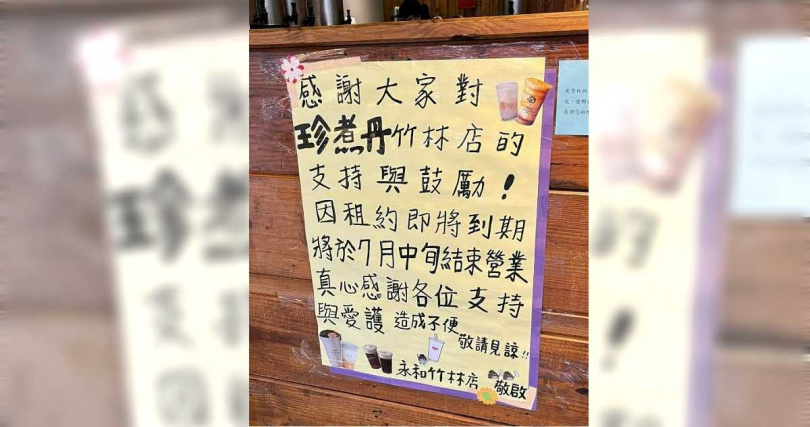 感謝大家對
珍煮丹竹林店的
支持與鼓勵!
因租約即將到期
將於7月中旬結束營業
真心感謝各位支持
與愛護 造成不便
敬請見諒!!
永和竹林店 敬啟